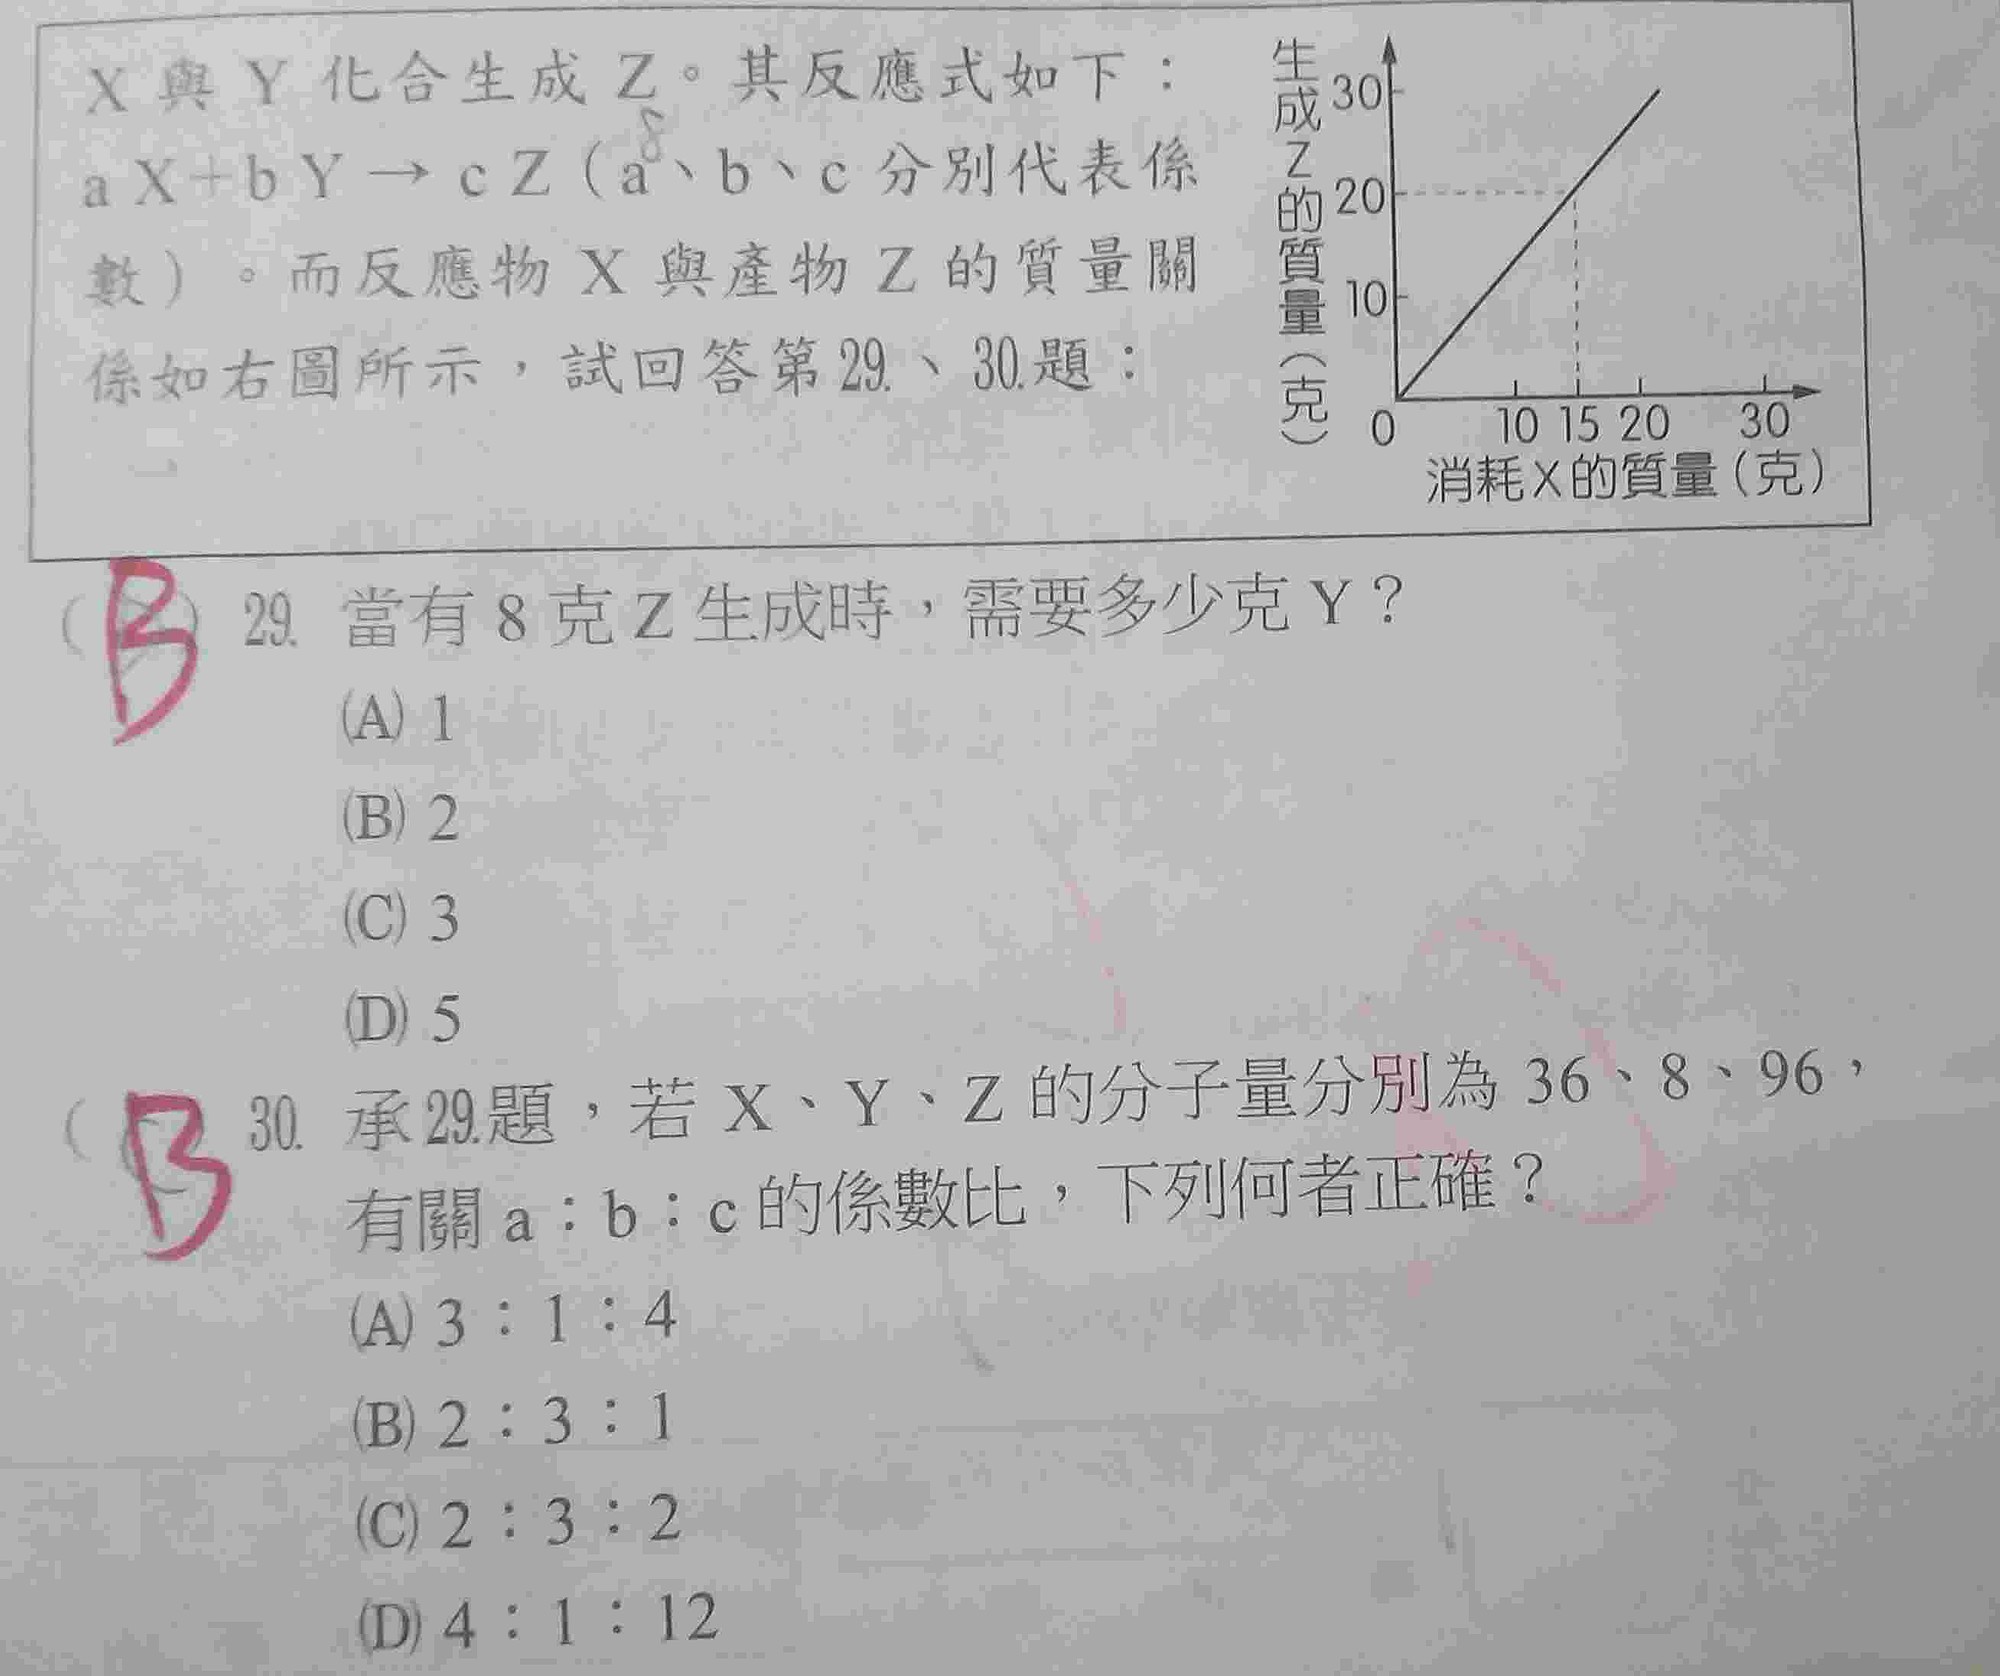 X 與 Y 化合生成 Z。其反應式如下：
8
a X＋b Y → c Z（a、b、c 分別代表係
數）。而反應物 X 與產物 Z 的質量關
係如右圖所示，試回答第29.、30.題：
生成Z的質量（克）
30
20
10
0 10 15 20 30
消耗X的質量（克）
B
( ) 29. 當有 8 克 Z 生成時，需要多少克 Y？
(A) 1
(B) 2
(C) 3
(D) 5
B
( ) 30. 承29.題，若 X、Y、Z 的分子量分別為 36、8、96，
有關 a：b：c 的係數比，下列何者正確？
(A) 3：1：4
(B) 2：3：1
(C) 2：3：2
(D) 4：1：12